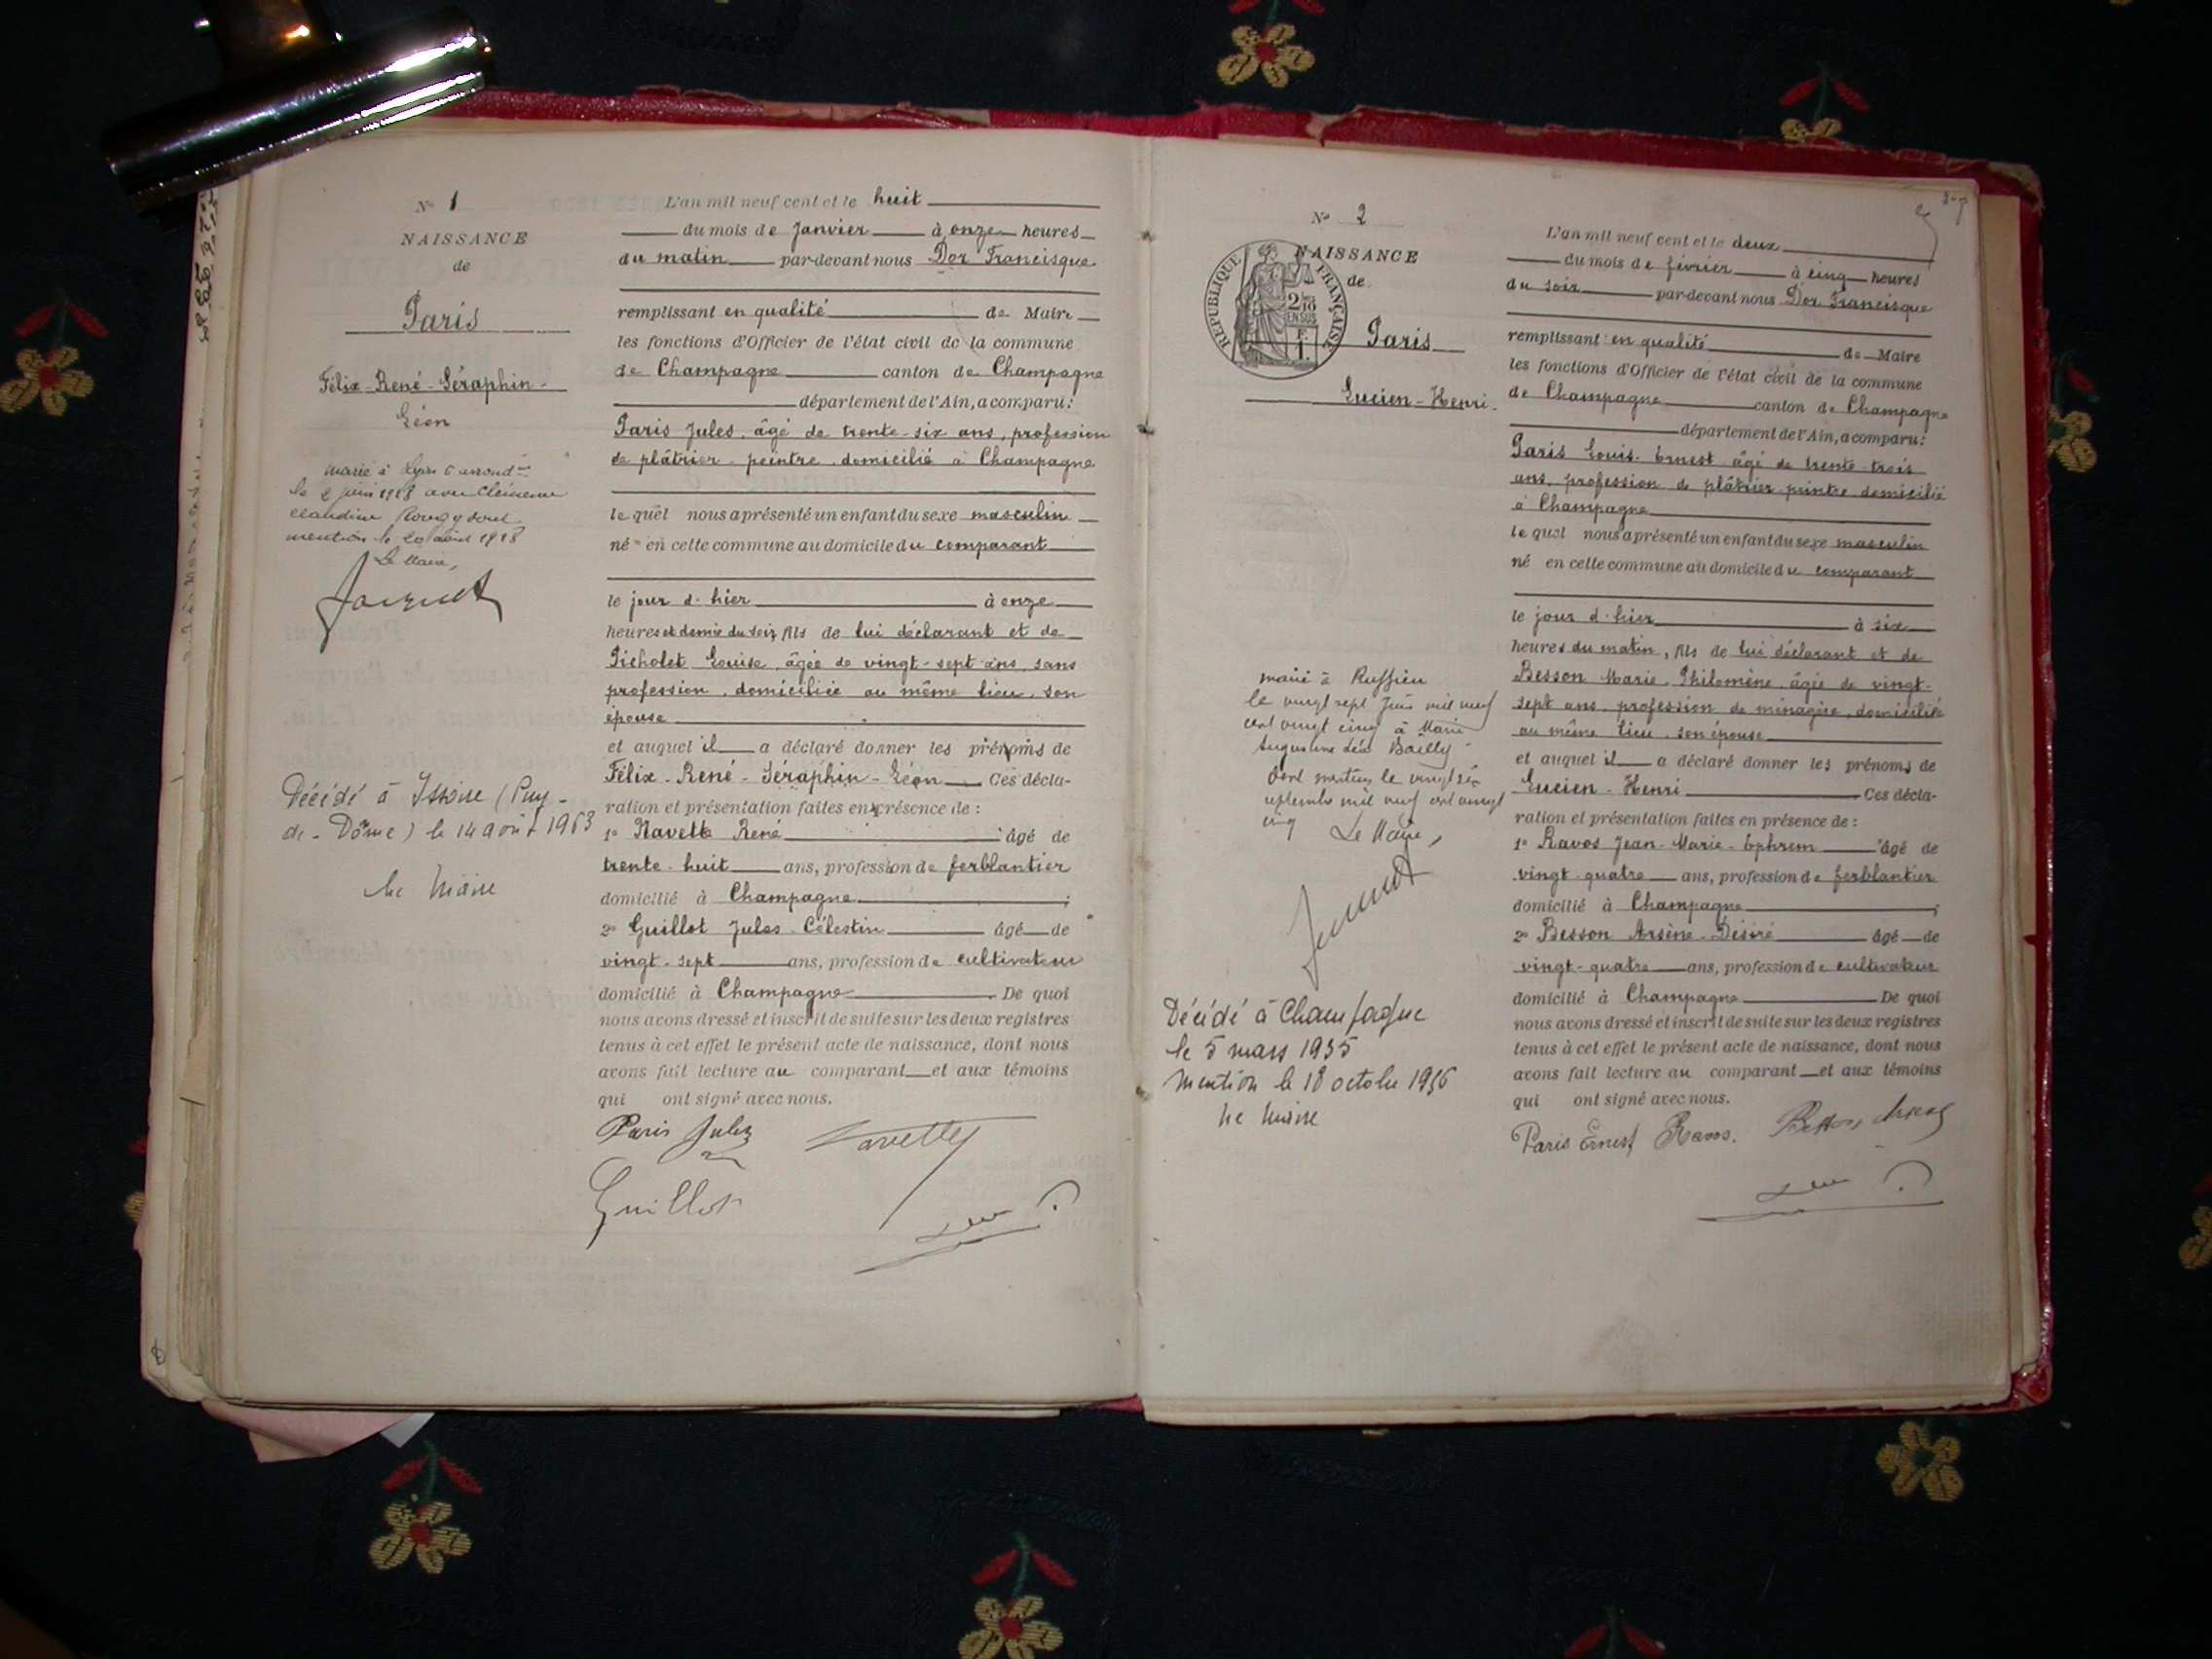 N° 1
NAISSANCE
de
Paris
Félix-René-Séraphin-
Léon
marié à Lyon 6 arrond
le 2 juin 1928 avec Clémence
Claudine
mention le 20 août 1928
Le Maire,
Décédé à Issoire (Puy-
de-Dôme) le 14 août 1963
Le Maire
L'an mil neuf cent et le huit
du mois de Janvier à onze heures
du matin par-devant nous Dor Francisque
remplissant en qualité de Maire
les fonctions d'Officier de l'état civil de la commune
de Champagne canton de Champagne
département de l'Ain, a comparu:
Paris Jules, âgé de trente-six ans, profession
de plâtrier-peintre, domicilié à Champagne
lequel nous a présenté un enfant du sexe masculin
né en cette commune au domicile du comparant
le jour d'hier à onze
heures et demie du soir, fils de lui déclarant et de
Picholet Louise, âgée de vingt-sept ans, sans
profession, domiciliée au même lieu, son
épouse
et auquel il a déclaré donner les prénoms de
Félix-René-Séraphin-Léon Ces décla-
ration et présentation faites en présence de :
1° Navette René âgé de
trente-huit ans, profession de ferblantier
domicilié à Champagne ;
2° Guillot Jules-Célestin âgé de
vingt-sept ans, profession de cultivateur
domicilié à Champagne De quoi
nous avons dressé et inscrit de suite sur les deux registres
tenus à cet effet le présent acte de naissance, dont nous
avons fait lecture au comparant et aux témoins
qui ont signé avec nous.
Paris Jules Navette
Guillot
N° 2
NAISSANCE
de
REPUBLIQUE FRANÇAISE
2/10
EN SUS
F.
1.
Paris
Lucien-Henri
marié à Ruffieu
le vingt sept Juin mil neuf
cent vingt cinq à Marie
Augustine Léa Bailly
dont mention le vingt six
septembre mil neuf cent vingt
cinq Le Maire,
Décédé à Champagne
le 5 mars 1935
Mention le 18 octobre 1956
Le Maire
L'an mil neuf cent et le deux
du mois de février à cinq heures
du soir par-devant nous Dor Francisque
remplissant en qualité de Maire
les fonctions d'Officier de l'état civil de la commune
de Champagne canton de Champagne
département de l'Ain, a comparu:
Paris Louis-Ernest âgé de trente-trois
ans, profession de plâtrier-peintre domicilié
à Champagne
lequel nous a présenté un enfant du sexe masculin
né en cette commune au domicile du comparant
le jour d'hier à six
heures du matin, fils de lui déclarant et de
Besson Marie-Philomène, âgée de vingt-
sept ans, profession de ménagère, domiciliée
au même lieu, son épouse
et auquel il a déclaré donner les prénoms de
Lucien-Henri Ces décla-
ration et présentation faites en présence de :
1° Ravos Jean-Marie-Ephrem âgé de
vingt-quatre ans, profession de ferblantier
domicilié à Champagne ;
2° Besson Arsène-Désiré âgé de
vingt-quatre ans, profession de cultivateur
domicilié à Champagne De quoi
nous avons dressé et inscrit de suite sur les deux registres
tenus à cet effet le présent acte de naissance, dont nous
avons fait lecture au comparant et aux témoins
qui ont signé avec nous.
Paris Ernest Ravos.